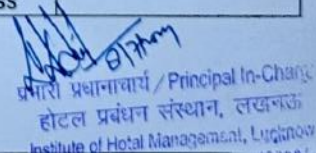 ss
प्रभारी प्रधानाचार्य / Principal In-Charge
होटल प्रबंधन संस्थान, लखनऊ
Institute of Hotal Management, Lucknow